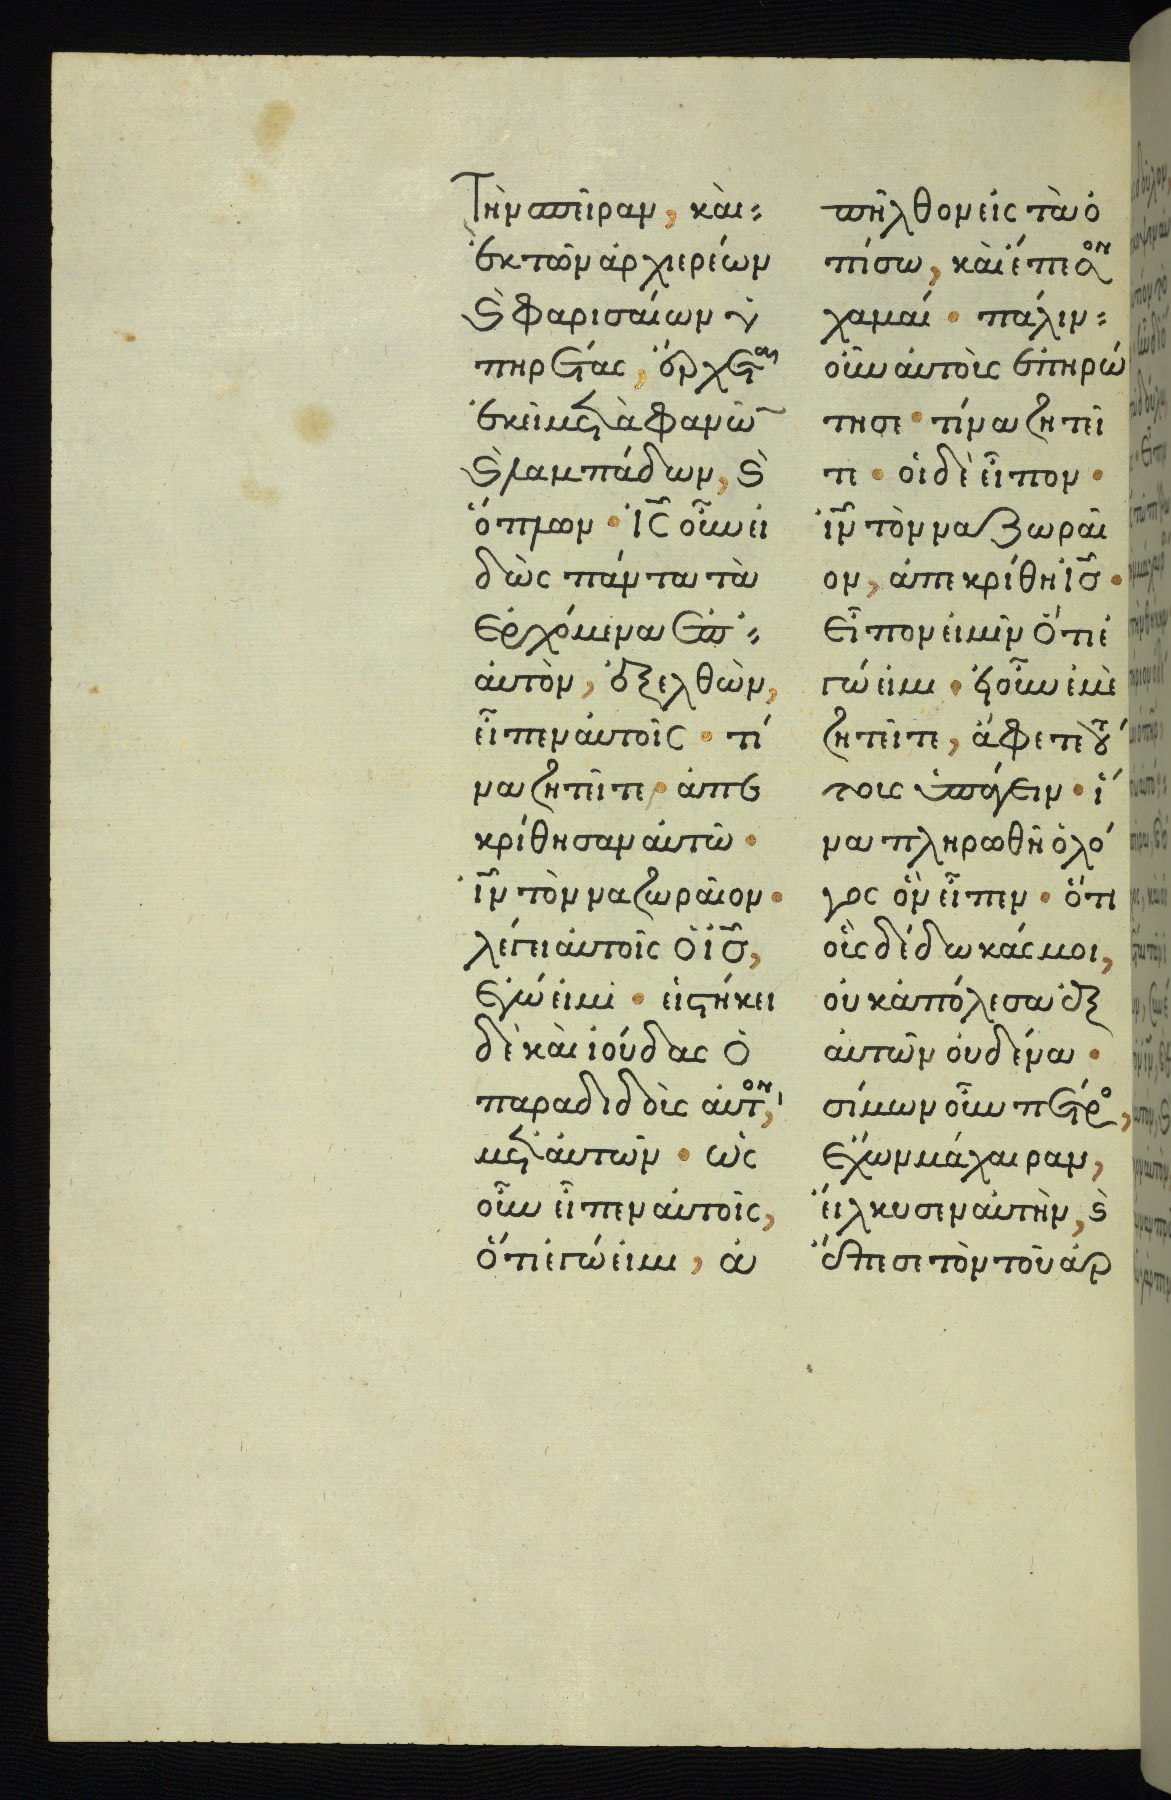 Τὴν σπεῖραν, καὶ
ἐκ τῶν ἀρχιερέων
ϗ φαρισαίων ὑ
πηρέτας, ἔρχεται
ἐκεῖ μετὰ φανῶ
ϗ λαμπάδων, ϗ
ὅπλων · ἰ̅ς̅ οὖν εἰ
δὼς πάντα τὰ
ἐρχόμενα ἐπ'
αὐτὸν, ἐξελθὼν,
εἶπεν αὐτοῖς · τί
να ζητεῖτε · ἀπε
κρίθησαν αὐτῶ ·
ἰ̅ν̅ τὸν ναζωραῖον ·
λέγει αὐτοῖς ὁ ἰ̅ς̅,
ἐγώ εἰμι · εἱστήκει
δὲ καὶ ἰούδας ὁ
παραδιδοὺς αὐτὸν,
μετ' αὐτῶν · ὡς
οὖν εἶπεν αὐτοῖς,
ὅτι ἐγώ εἰμι, ἀ
πῆλθον εἰς τὰ ὀ
πίσω, καὶ ἔπεσον
χαμαί · πάλιν
οὖν αὐτοὺς ἐπηρώ
τησε · τίνα ζητεῖ
τε · οἱ δὲ εἶπον ·
ἰ̅ν̅ τὸν ναζωραῖ
ον, ἀπεκρίθη ἰ̅ς̅ ·
εἶπον ὑμῖν ὅτι ἐ
γώ εἰμι · εἰ οὖν ἐμὲ
ζητεῖτε, ἄφετε τού
τους ὑπάγειν · ἵ
να πληρωθῆ ὁ λό
γος ὃν εἶπεν · ὅτι
οὓς δέδωκάς μοι,
οὐκ ἀπόλεσα ἐξ
αὐτῶν οὐδένα ·
σίμων οὖν πέτρος,
ἔχων μάχαιραν,
εἵλκυσεν αὐτὴν, ϗ
ἔπαισε τὸν τοῦ ἀρ